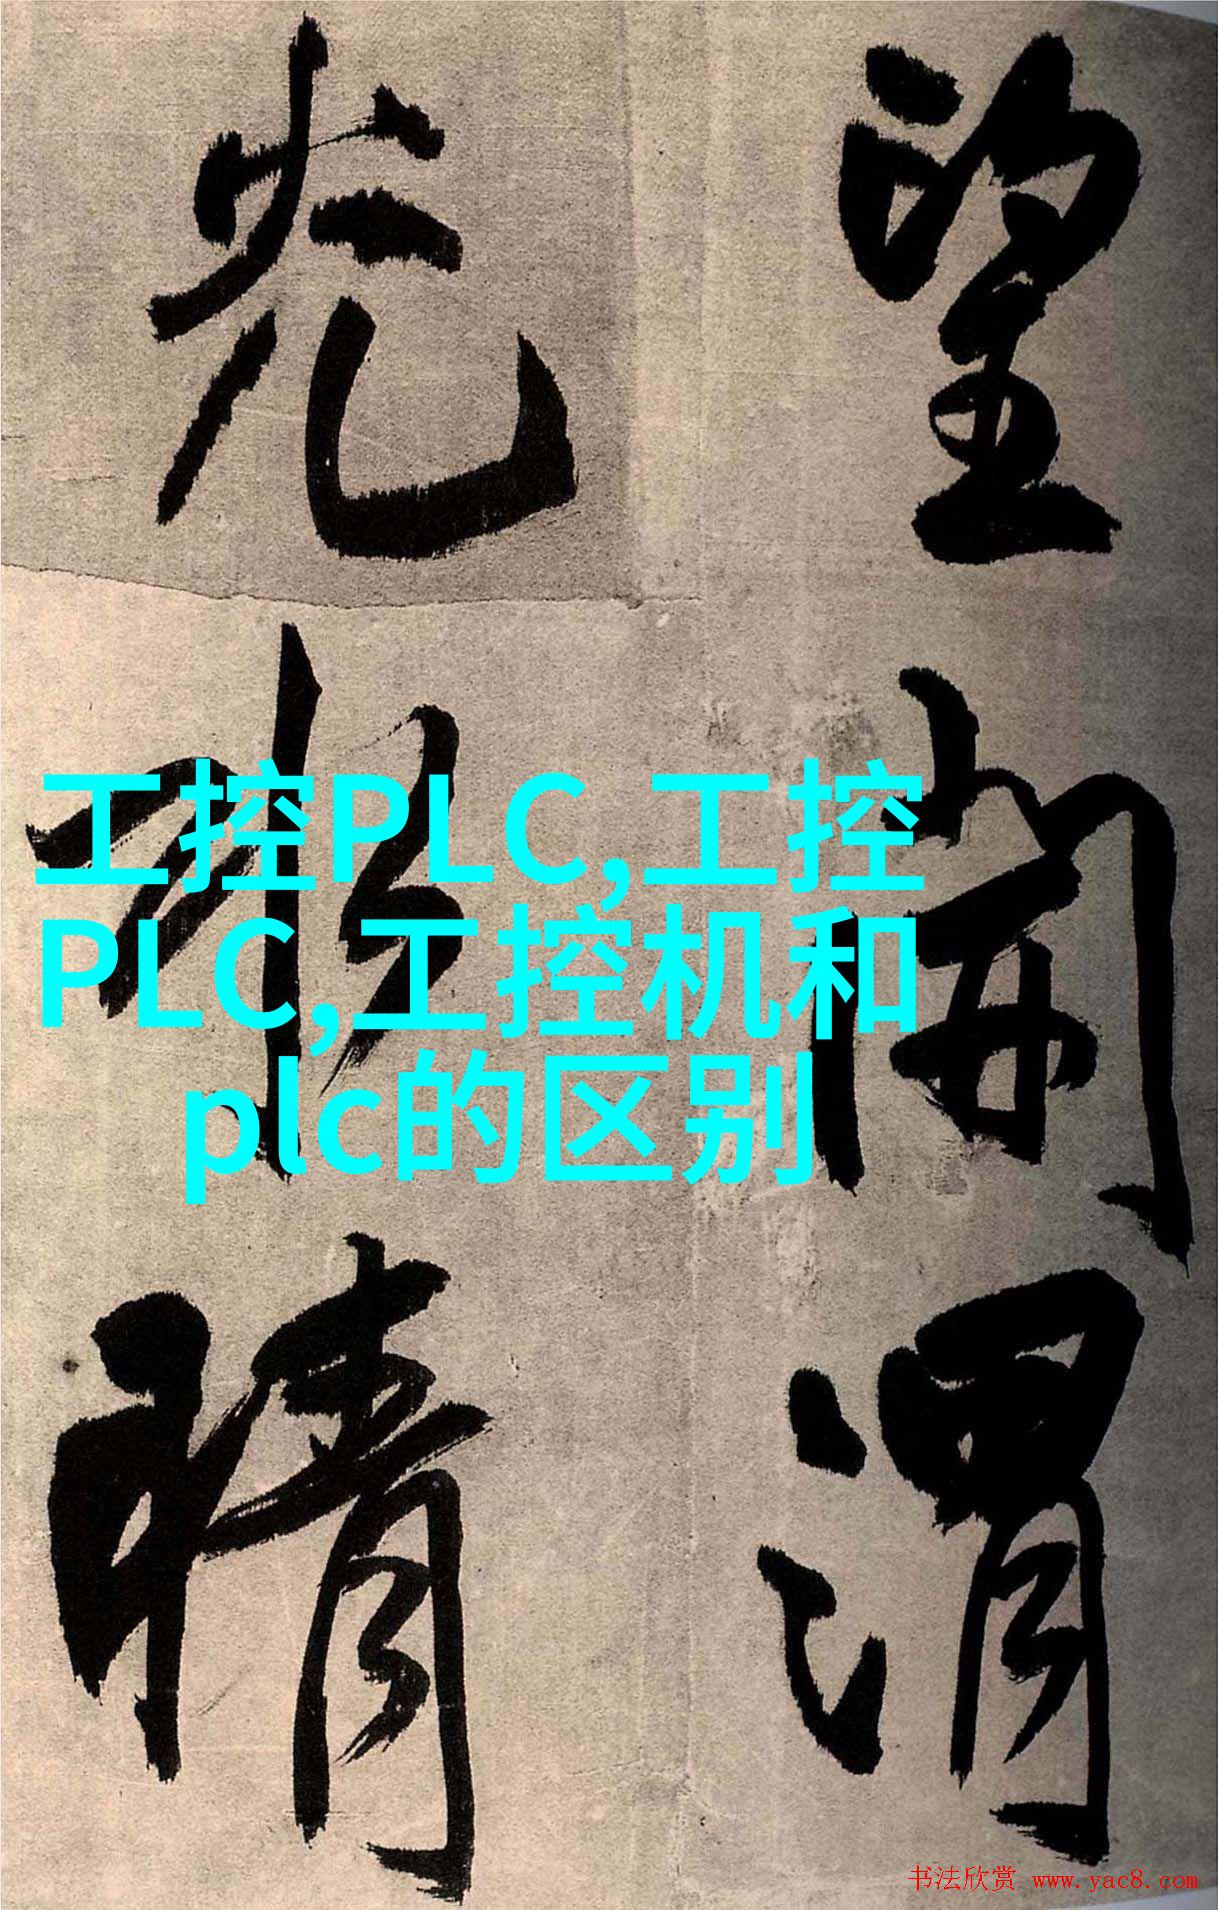 工控PLC,工控
PLC,工控机和
plc的区别
望開渭
光
晴
书法欣赏 www.yac8.com